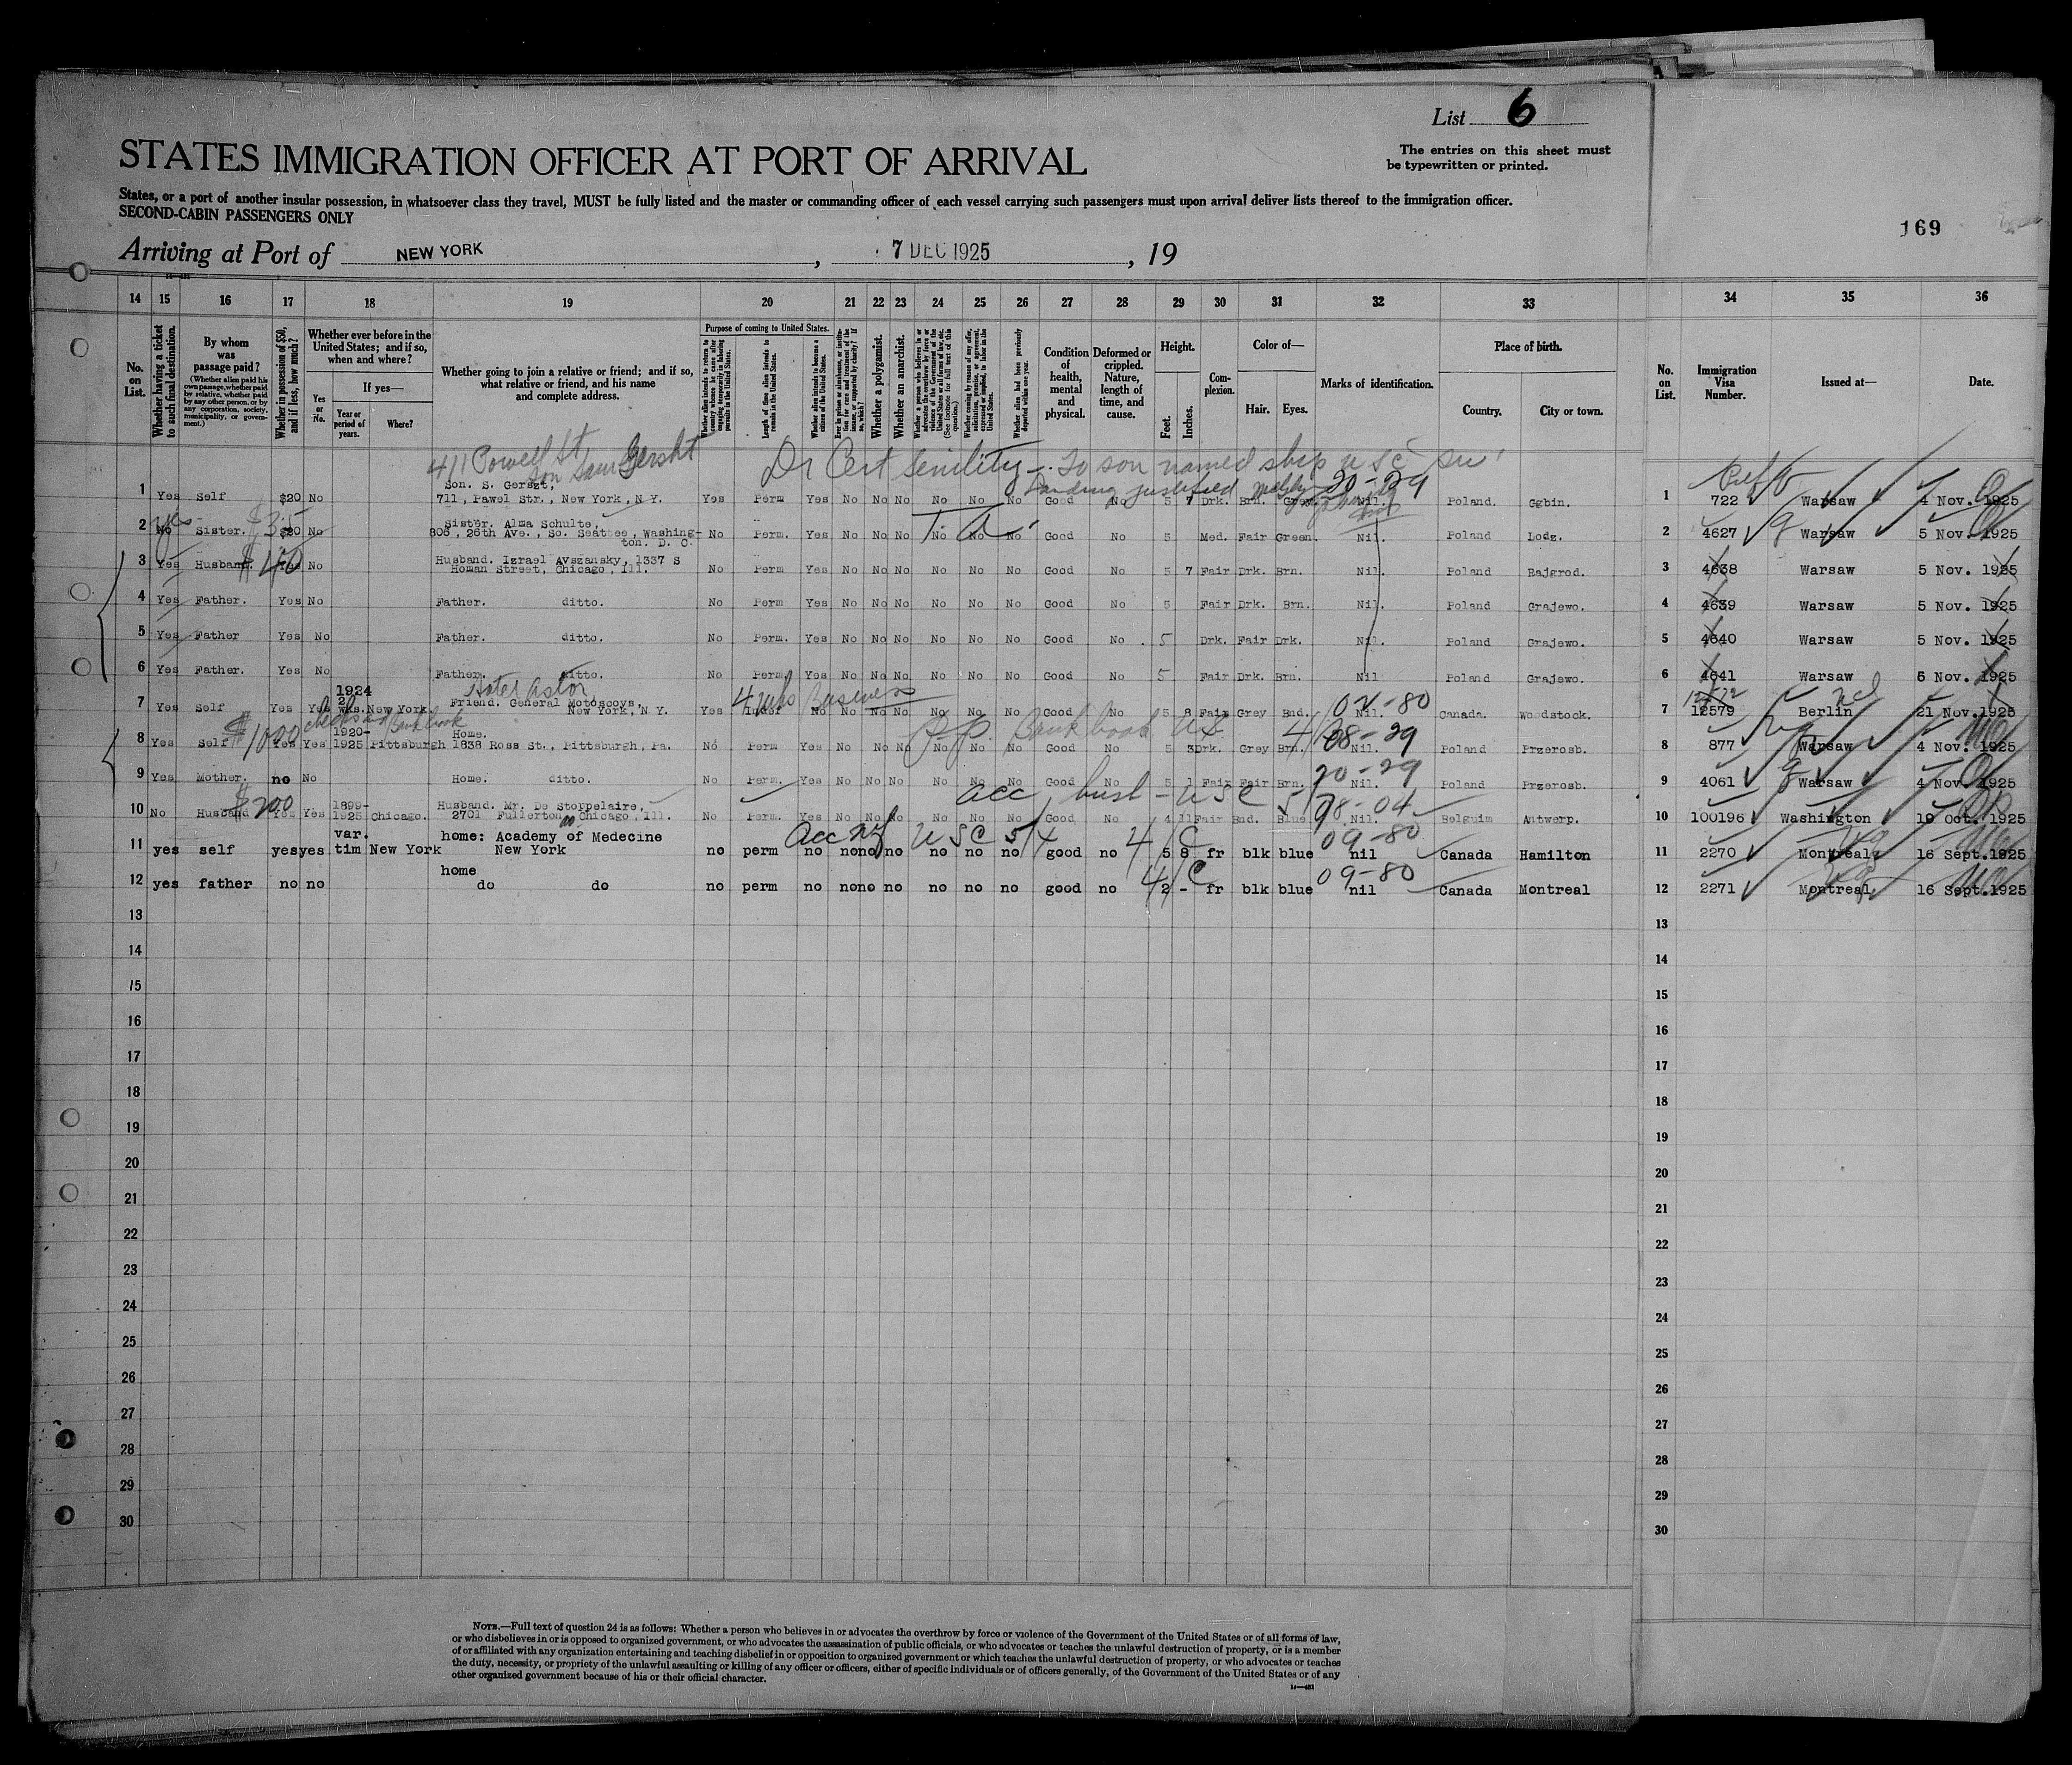 List 6
The entries on this sheet must
be typewritten or printed.
STATES IMMIGRATION OFFICER AT PORT OF ARRIVAL
States, or a port of another insular possession, in whatsoever class they travel, MUST be fully listed and the master or commanding officer of each vessel carrying such passengers must upon arrival deliver lists thereof to the immigration officer.
SECOND-CABIN PASSENGERS ONLY
169
Arriving at Port of NEW YORK, 7 DEC 1925, 19
14 15 16 17 18 19 20 21 22 23 24 25 26 27 28 29 30 31 32 33 34 35 36
No. on List.
Whether having a ticket to such final destination.
By whom was passage paid?
(Whether alien paid his own passage, whether paid by relative, whether paid by any other person, or by any corporation, society, municipality, or government.)
Whether in possession of $50, and if less, how much?
Whether ever before in the United States; and if so, when and where?
Yes or No.
If yes—
Year or period of years.
Where?
Whether going to join a relative or friend; and if so, what relative or friend, and his name and complete address.
Purpose of coming to United States.
Length of time alien intends to remain in the United States.
Whether alien intends to become a citizen of the United States.
Whether a polygamist.
Whether an anarchist.
Whether alien had been previously deported within one year.
Condition of health, mental and physical.
Deformed or crippled. Nature, length of time, and cause.
Height.
Feet. Inches.
Complexion.
Color of—
Hair. Eyes.
Marks of identification.
Place of birth.
Country. City or town.
No. on List.
Immigration Visa Number.
Issued at—
Date.
411 Powell St
son Sam Gersht
Dr Cert Senility - To son named ship USC
Landing justified
20-29
1 Yes Self $20 No Son. S. Gerszt, 711, Pawel Str., New York, N.Y. Yes Perm Yes No No No No No No Good No 5 7 Drk. Brn. Grey Nil. Poland. Ggbin. 1 722 Warsaw 4 Nov. 1925
yes $35
2 No Sister. $20 No Sister. Alma Schulte, 806, 26th Ave., So. Seattee, Washing-ton. D. C. No Perm. Yes No No No No No No Good No 5 Med. Fair Green. Nil. Poland Lodz. 2 4627 Warsaw 5 Nov. 1925
3 Yes Husband. $140 No Husband. Izrael Avszansky, 1337 S Homan Street, Chicago, Ill. No Perm Yes No No No No No No Good No 5 7 Fair Drk. Brn. Nil. Poland Rajgrod. 3 4638 Warsaw 5 Nov. 1925
4 Yes Father. Yes No Father. ditto. No Perm Yes No No No No No No Good No 5 Fair Drk. Brn. Nil. Poland Grajewo. 4 4639 Warsaw 5 Nov. 1925
5 Yes Father Yes No Father. ditto. No Perm. Yes No No No No No No Good No 5 Drk. Fair Drk. Nil. Poland Grajewo. 5 4640 Warsaw 5 Nov. 1925
6 Yes Father. Yes No Father. ditto. No Perm. Yes No No No No No No Good No 5 Fair Drk. Brn. Nil Poland Grajewo. 6 4641 Warsaw 5 Nov. 1925
Hotel Astor
4 wks Business
02-80
7 Yes Self Yes Yes 1924 2 wks. New York. Friend. General Motoscoys, New York, N.Y. Yes Indef No No No No No No No Good No 5 8 Fair Grey Bnd. Nil. Canada. Woodstock. 7 12579 Berlin 21 Nov. 1925
$1000 checks and Bank book
Bank book US
08-29
8 Yes Self Yes Yes 1920-1925 Pittsburgh Home. 1838 Ross St., Pittsburgh, Pa. No Perm Yes No No No No No No Good No 5 3 Drk. Grey Brn. Nil. Poland Przerosb. 8 877 Warsaw 4 Nov. 1925
20-29
9 Yes Mother. no No Home. ditto. No Perm. Yes No No No No No No Good No 5 1 Fair Fair Brn. Nil. Poland Przerosb. 9 4061 Warsaw 4 Nov. 1925
$200
acc husb - USC 5/
08-04
10 No Husband Yes Yes 1899-1925 Chicago. Husband. Mr. De Storpelaire, 2701 Fullerton Chicago, Ill. No Perm. Yes No No No No No No Good No 4 11 Fair Bnd. Blue Nil. Belguim Antwerp. 10 100196 Washington 19 Oct. 1925
acc wf USC 5/4
4/C
09-80
11 yes self yes yes var. tim New York home: Academy of Medecine New York no perm no no no no no no no good no 5 8 fr blk blue nil Canada Hamilton 11 2270 Montreal 16 Sept. 1925
4/C
09-80
12 yes father no no home do do no perm no no no no no no no good no 2 - fr blk blue nil Canada Montreal 12 2271 Montreal 16 Sept. 1925
13 13
14 14
15 15
16 16
17 17
18 18
19 19
20 20
21 21
22 22
23 23
24 24
25 25
26 26
27 27
28 28
29 29
30 30
NOTE.—Full text of question 24 is as follows: Whether a person who believes in or advocates the overthrow by force or violence of the Government of the United States or of all forms of law,
or who disbelieves in or is opposed to organized government, or who advocates the assassination of public officials, or who advocates or teaches the unlawful destruction of property, or is a member
of or affiliated with any organization entertaining and teaching disbelief in or opposition to organized government or which teaches the unlawful destruction of property, or who advocates or teaches
the duty, necessity, or propriety of the unlawful assaulting or killing of any officer or officers, either of specific individuals or of officers generally, of the Government of the United States or of any
other organized government because of his or their official character.